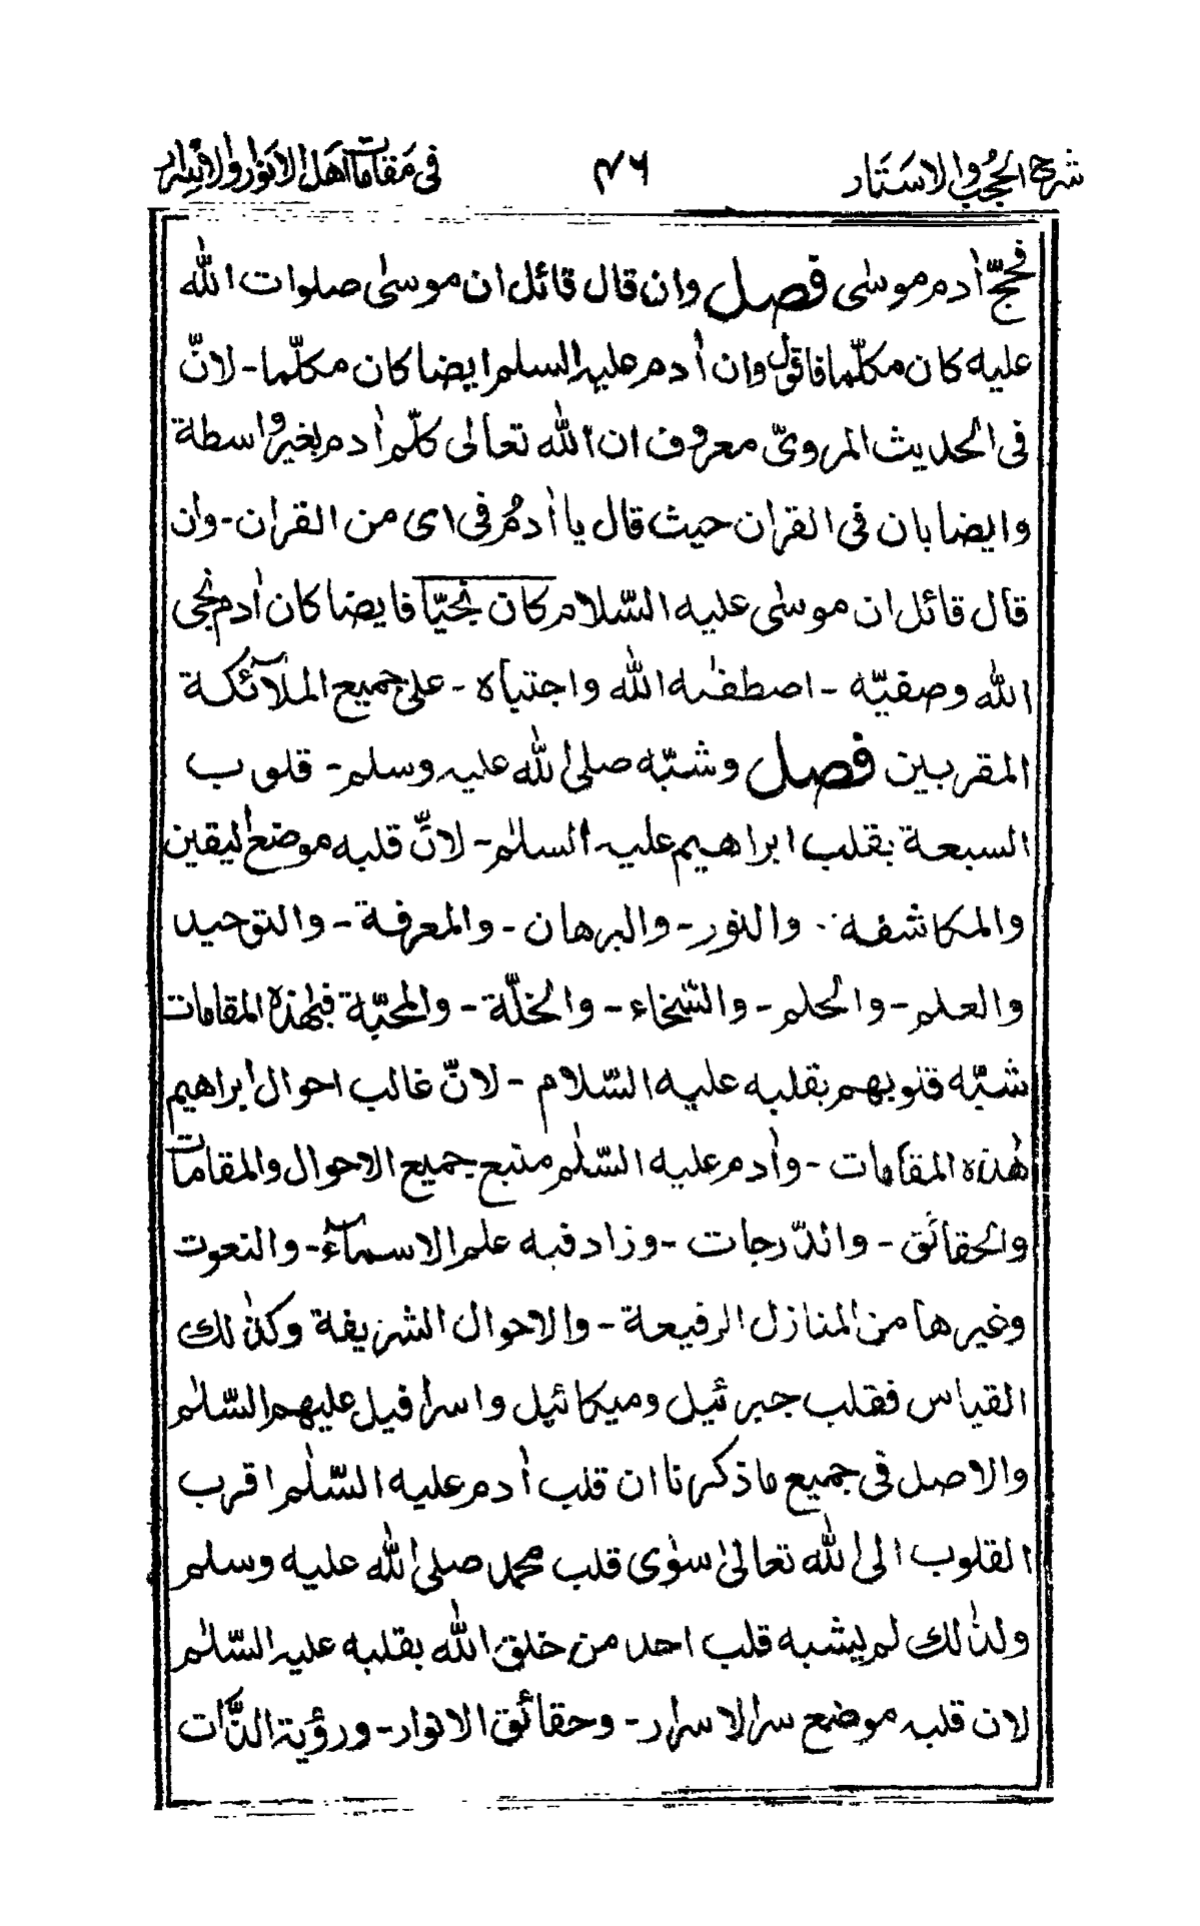 شرح الحُجُب والاسَتَار ۴۶ فی مَقامات اَهَل الاَنوَار والاَسْرار
فحجّ اٰدم موسٰی فصل وان قال قائل ان موسٰی صلوات اللّٰه
علیه کان مکلّما فاقول وان اٰدم علیه السلم ایضا کان مکلّما - لانّ
فی الحدیث المرویّ معروف ان اللّٰه تعالٰی کلّم اٰدم بغیر واسطة
وایضا بان فی القراٰن حیث قال یا اٰدمُ فی ای من القراٰن - وان
قال قائل ان موسٰی علیه السّلام کان نجیّا فایضا کان اٰدم نجی
اللّٰه وصفیّه - اصطفٰه اللّٰه واجتباه - علی جمیع الملآئکة
المقربین فصل وشبّه صلی اللّٰه علیه وسلم - قلوب
السبعة بقلب ابراهیم علیه السلٰم - لانّ قلبه موضع الیقین
والمکاشفه - والنور - والبرهان - والمعرفة - والتوحید
والعلم - والحلم - والسّخاء - والخلّة - والمحبّة فبهٰذه المقامات
شبّه قلوبهم بقلبه علیه السّلام - لانّ غالب احوال ابراهیم
هٰذه المقامات - واٰدم علیه السّلٰم منبع جمیع الاحوال والمقامات
والحقائق - والدّرجات - وزاد فیه علم الاسمآء - والنعوت
وغیرها من المنازل الرفیعة - والاحوال الشریفة وکذٰلک
القیاس فقلب جبرئیل ومیکائیل واسرافیل علیهم السّلٰم
والاصل فی جمیع ماذکرنا ان قلب اٰدم علیه السّلٰم اقرب
القلوب الی اللّٰه تعالیٰ سوٰی قلب محمد صلی اللّٰه علیه وسلم
ولذٰلک لم یشبه قلب احد من خلق اللّٰه بقلبه علیه السّلٰم
لان قلبه موضع سر الاسرار - وحقائق الانوار - ورؤیة الذّات